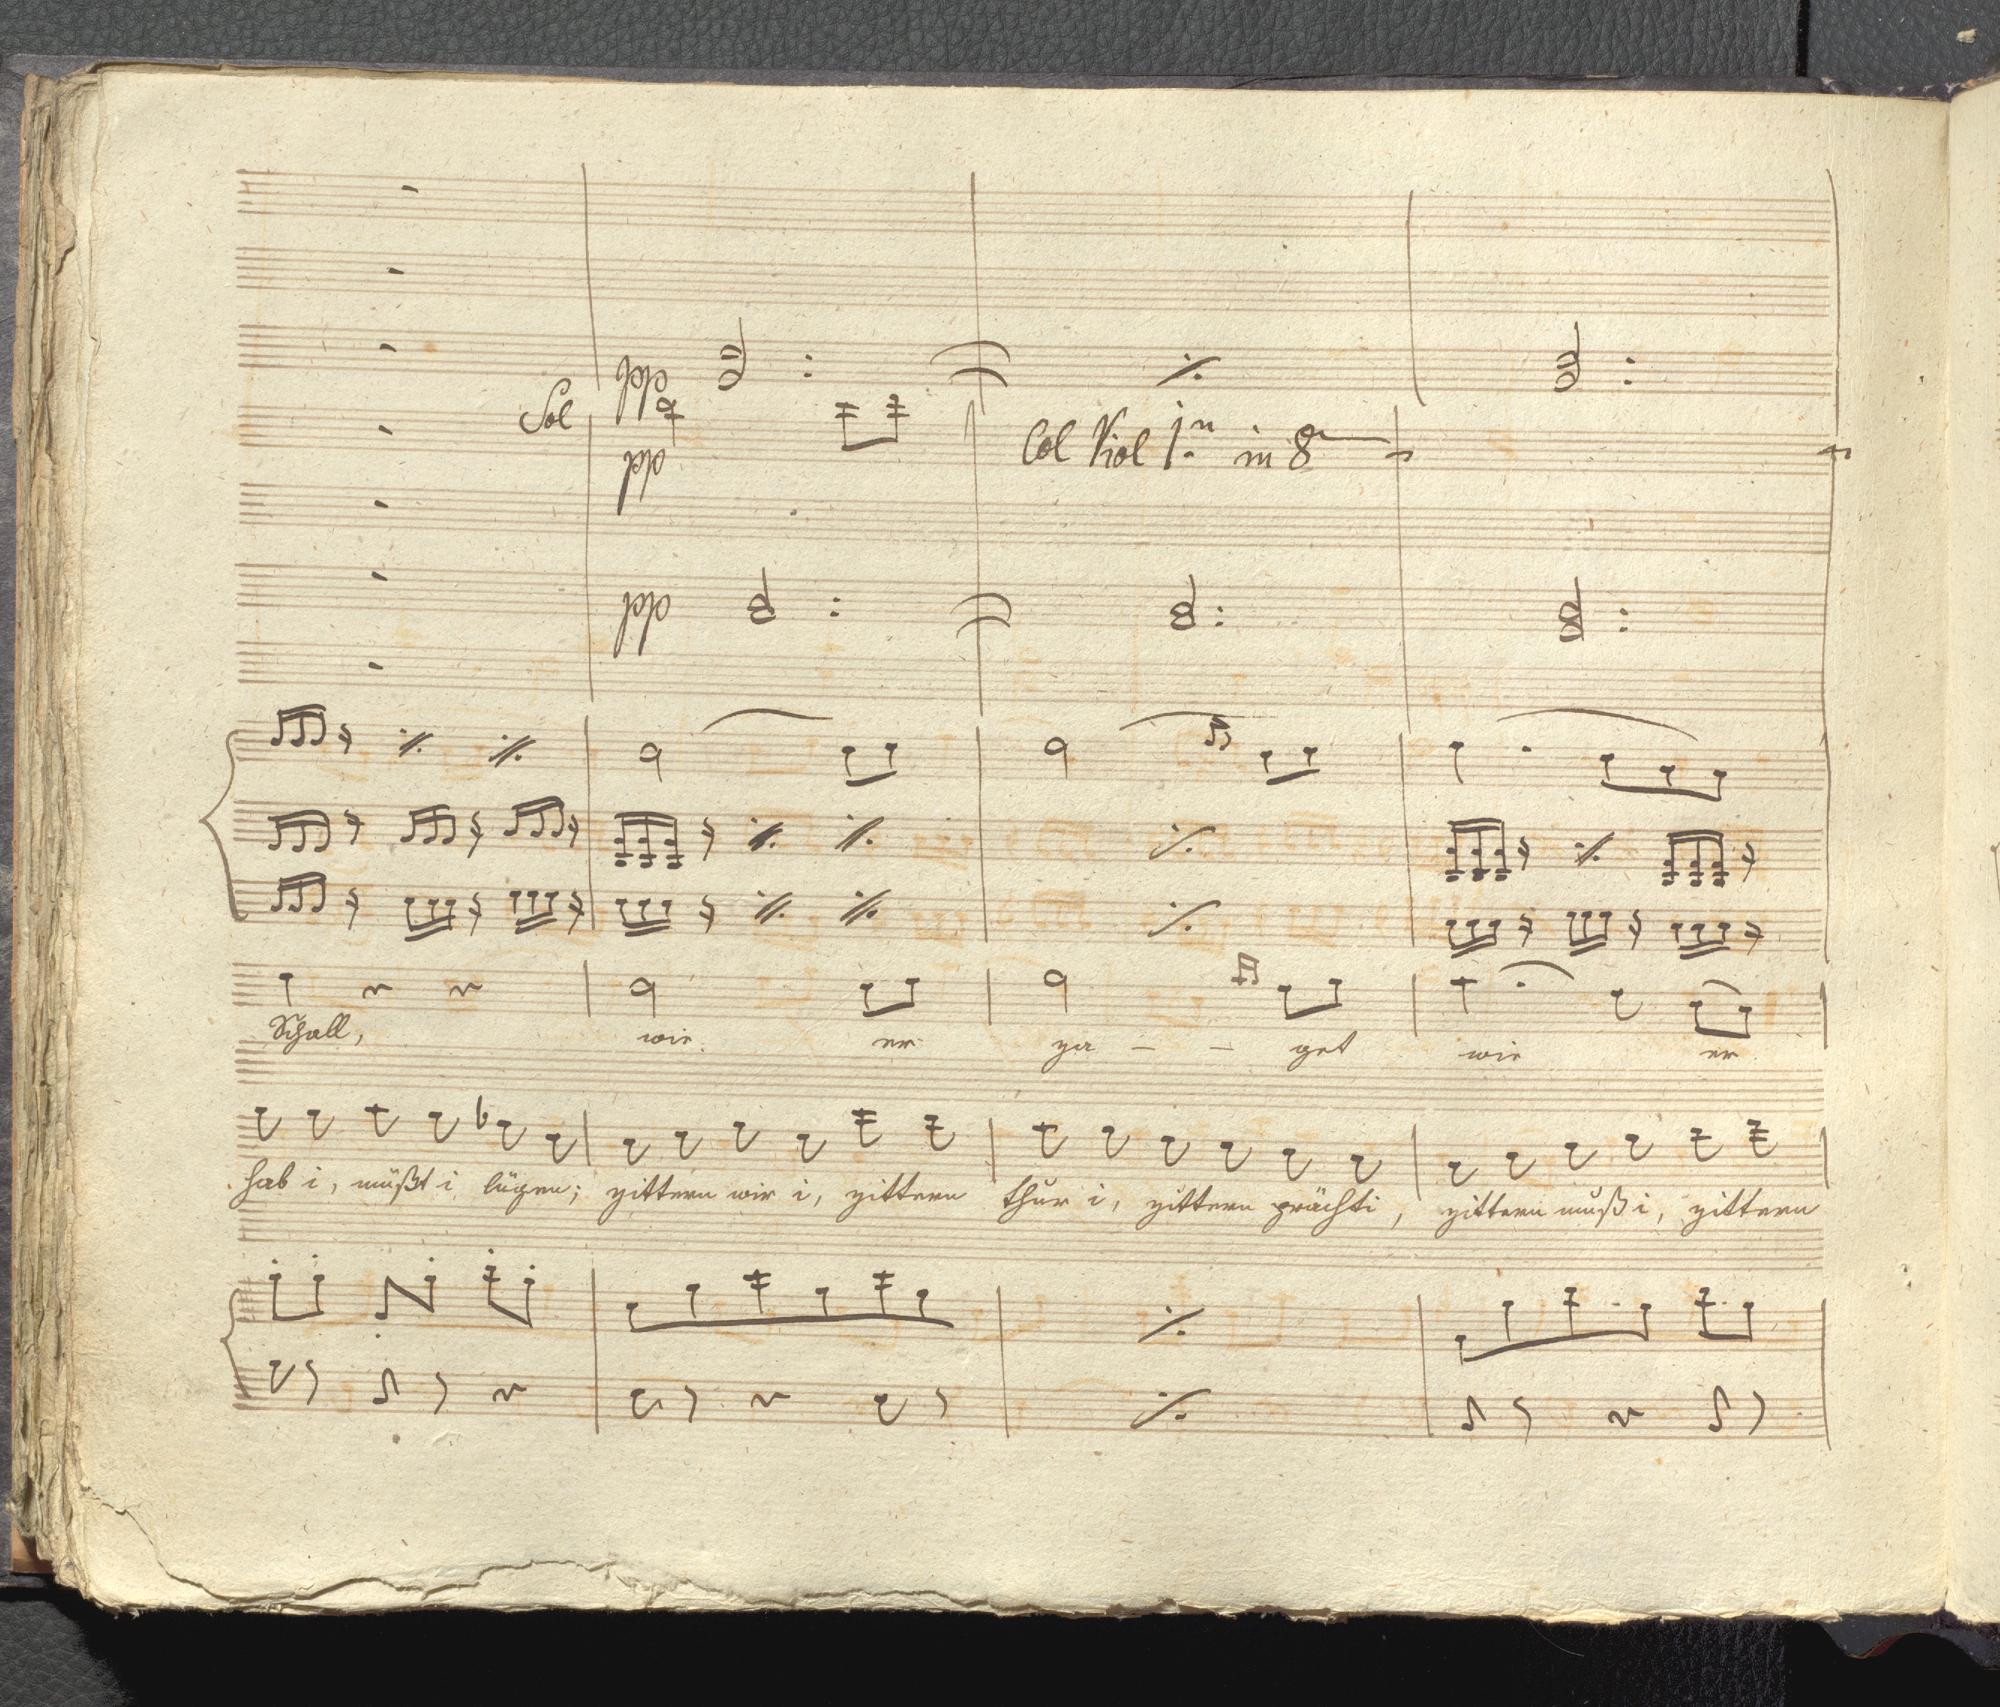 Sol
pp
pp
Col Viol 1.n in 8
pp
Schall,
wie er za - - get wie er
hab i, müßt i lügen; zittern wir i, zittern thur i, zittern prächti, zittern muß i, zittern